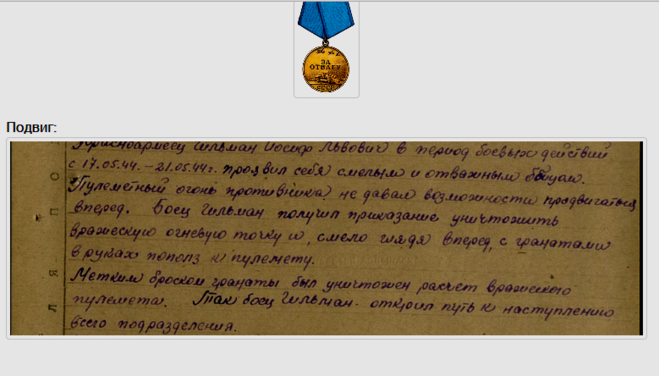 ЗА
ОТВАГУ
СССР
Подвиг:
Красноармеец Гильман Иосиф Львович в период боевых действий
с 17.05.44. – 21.05.44г. проявил себя смелым и отважным бойцом.
Пулеметный огонь противника не давал возможности продвигаться
вперед. Боец Гильман получил приказание уничтожить
вражескую огневую точку и, смело глядя вперед, с гранатами
в руках пополз к пулемету.
Метким броском гранаты был уничтожен расчет вражеского
пулемета. Так боец Гильман открыл путь к наступлению
всего подразделения.
П О
Л Я